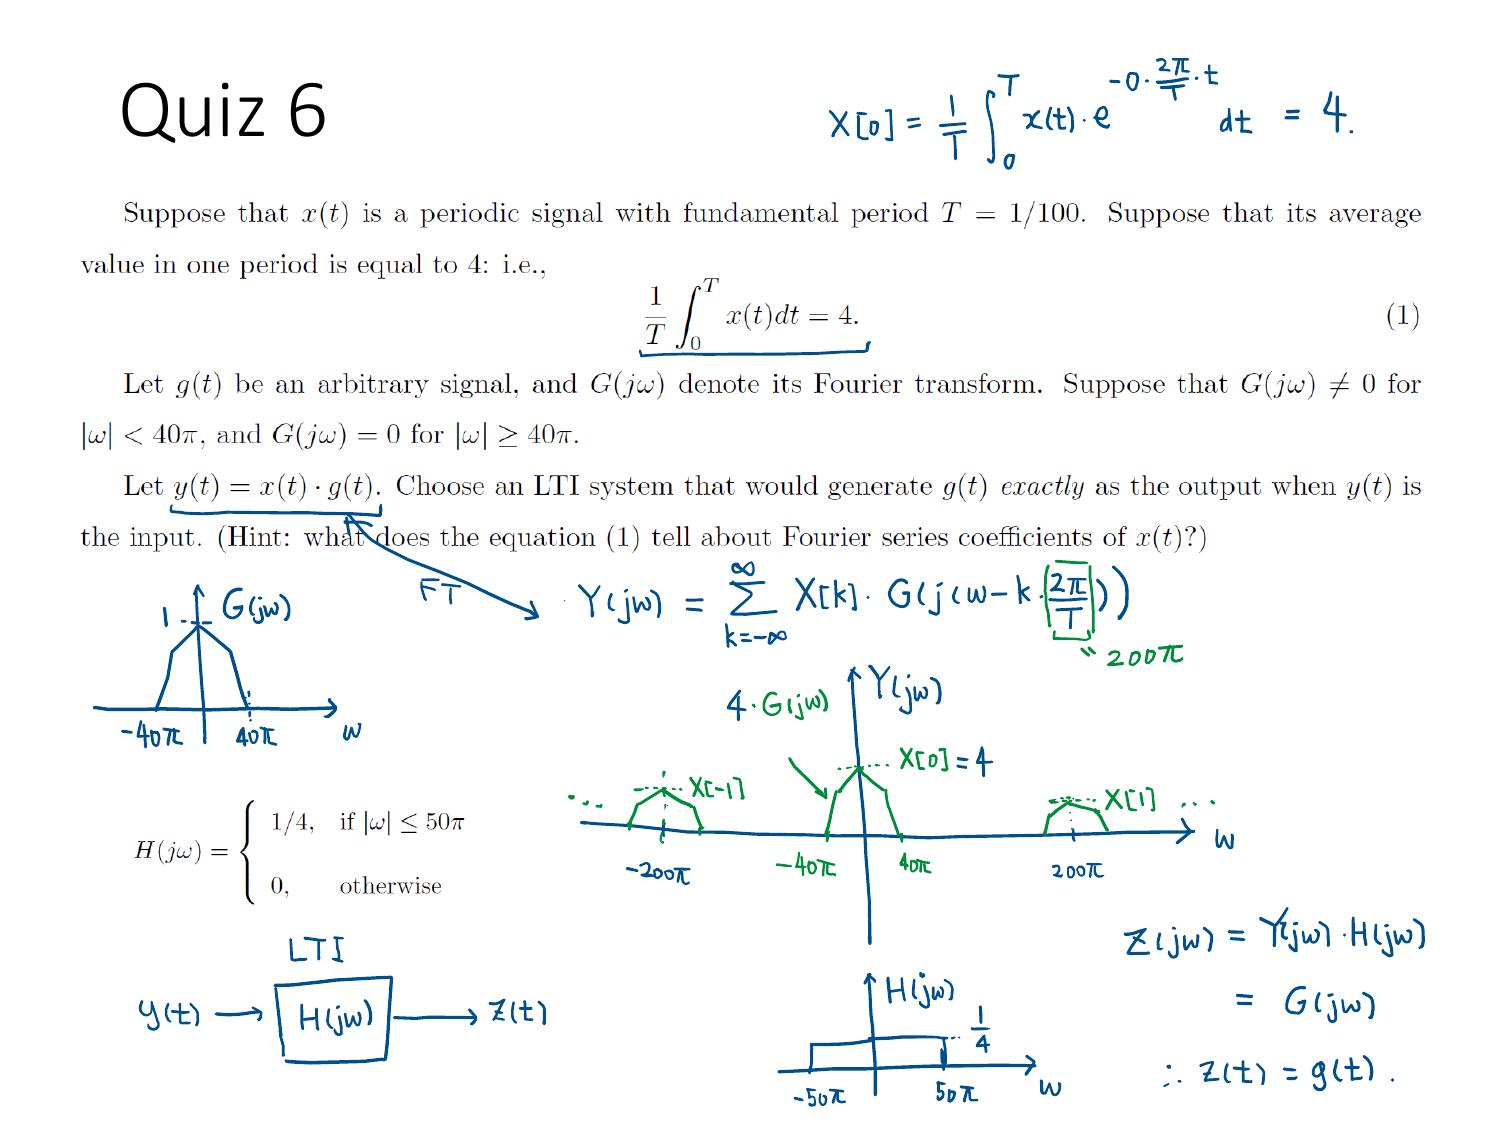 Quiz 6
X[0] = 1/T ∫_0^T x(t)·e^{-0·2π/T·t} dt = 4.
Suppose that x(t) is a periodic signal with fundamental period T = 1/100. Suppose that its average
value in one period is equal to 4: i.e.,
1/T ∫_0^T x(t)dt = 4. (1)
Let g(t) be an arbitrary signal, and G(jω) denote its Fourier transform. Suppose that G(jω) ≠ 0 for
|ω| < 40π, and G(jω) = 0 for |ω| ≥ 40π.
Let y(t) = x(t) · g(t). Choose an LTI system that would generate g(t) exactly as the output when y(t) is
the input. (Hint: what does the equation (1) tell about Fourier series coefficients of x(t)?)
FT
Y(jw) = ∑_{k=-∞}^{∞} X[k]· G(j(w-k·2π/T))
" 200π
1 G(jw)
-40π 40π w
4·G(jw) Y(jw)
X[0] = 4
... X[-1] X[1] ...
-200π -40π 40π 200π w
H(jω) = { 1/4, if |ω| ≤ 50π
0, otherwise
LTI
y(t) → H(jw) → Z(t)
H(jw)
1/4
-50π 50π w
Z(jw) = Y(jw)·H(jw)
= G(jw)
∴ Z(t) = g(t).